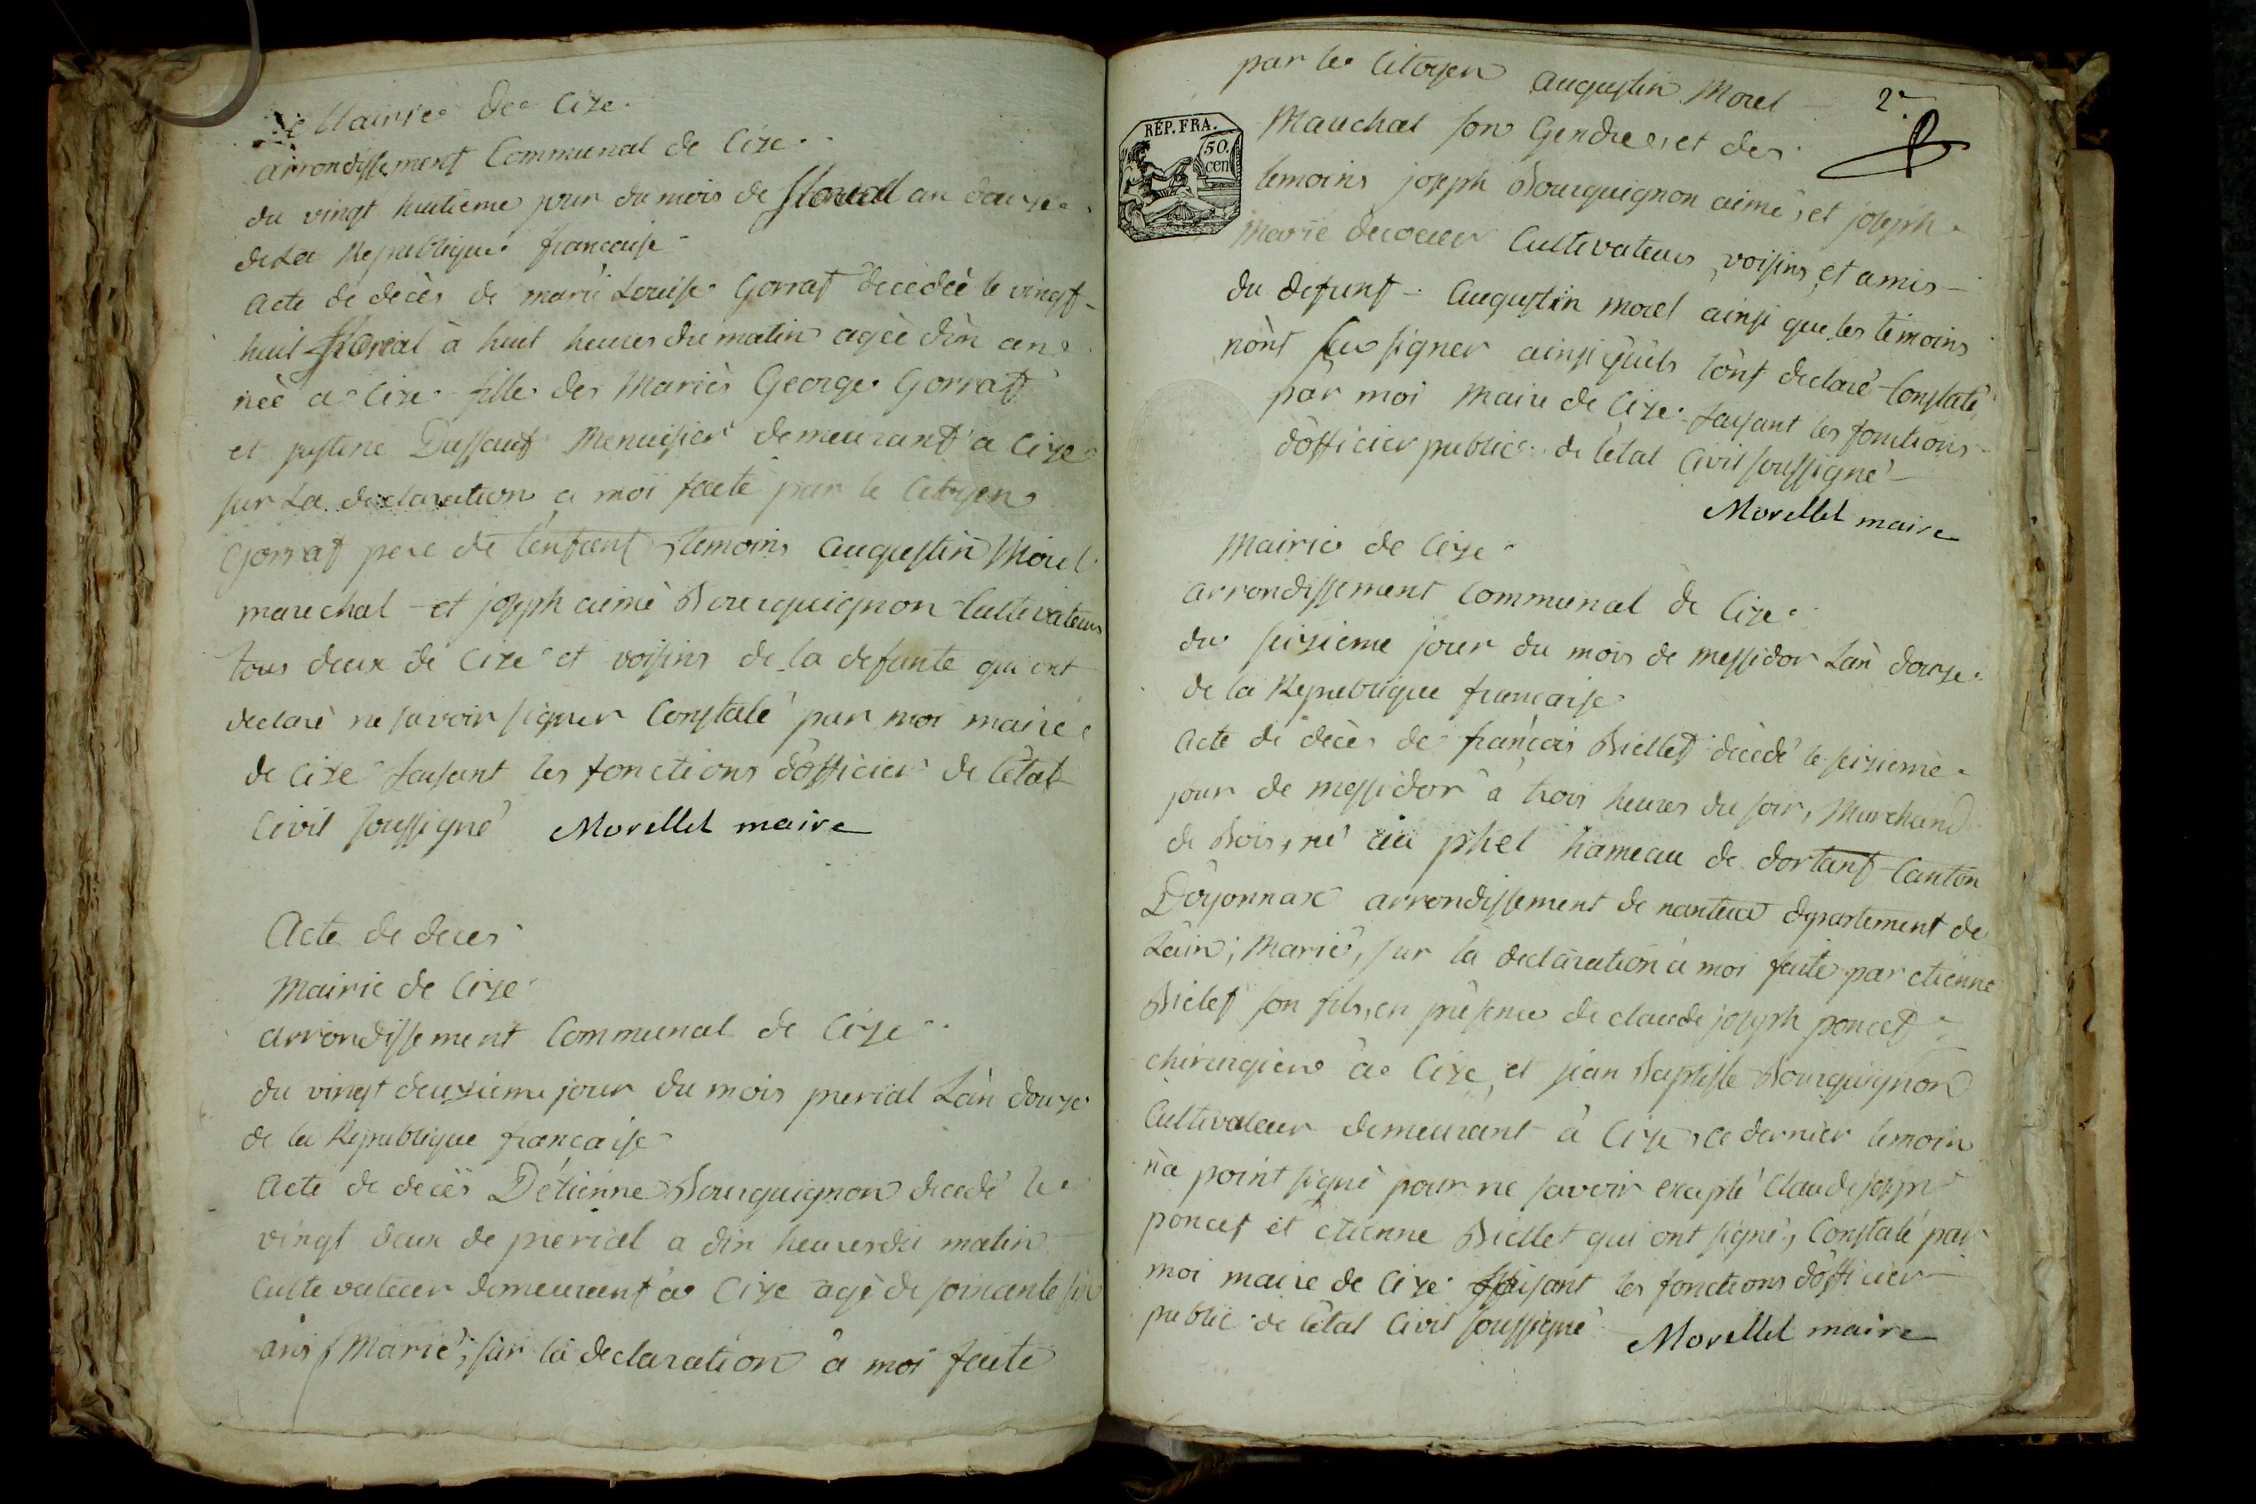 Mairie de Cize
arrondissement Communal de Cize
du vingt huitieme jour du mois de floreal an douze
de La Republique francaise
acte de decès de marie Louise Gorrat decedeè le vingt
huit floreal à huit heures du matin ageè d'un an
neè a Cize fille des Mariès George Gorrat
et justine Dussaut Menuisier demeurant a Cize
sur La declaration a moi faite par le Citoyen
Gorrat pere de l'enfant, temoins augustin Morel
marechal et joseph aimé Bourguignon Cultivateurs
tous deux de Cize et voisins de la defunte qui ont
declaré ne savoir signer Constaté par moi maire
de Cize faisant les fonctions d'officier de l'état
Civil soussigné Morellet maire
Acte de deces
Mairie de Cize
arrondissement Communal de Cize
du vingt deuxieme jour du mois prerial L'an douze
de la Republique francaise
acte de decès D'étienne Bourguignon decedé le
vingt deux de prerial a dix heures du matin
Cultivateur demeurent a Cize agé de soixante six
ans, Marié, sur la declaration a moi faite
par le Citoyen augustin Morel
2e
Marechal son Gendre, et des
RÉP. FRA.
50. cen
temoins joseph Bourguignon aimé, et joseph
marie Cultivateurs, voisins et amis
du defunt. augustin morel ainsi que les témoins
n'ont su signer ainsi qu'ils l'ont declaré Constaté
par moi Maire de Cize faisant les fonctions
d'officier public de l'état Civil soussigné
Morellet maire
Mairie de Cize
arrondissement Communal de Cize
du seizieme jour du mois de messidor L'an douze
de la Republique francaise
acte de decès de françois Biellet décedé le seizieme
jour de messidor a trois heures du soir, Marchand
de Bois, né au phel hameau de dortant Canton
D'oyonnax arrondissement de nantua departement de
L'ain, Marié, sur la declaration a moi faite par etienne
Bielet son fils, en présence de claude joseph poncet
chirurgien a Cize, et jean Baptiste Bourguignon
Cultivateur demeurant à Cize, ce dernier temoin
n'a point signé pour ne savoir excepté Claude joseph
poncet et etienne Biellet qui ont signé, Constaté par
moi maire de Cize faisant les fonctions d'officier
public de l'état Civil soussigné Morellet maire